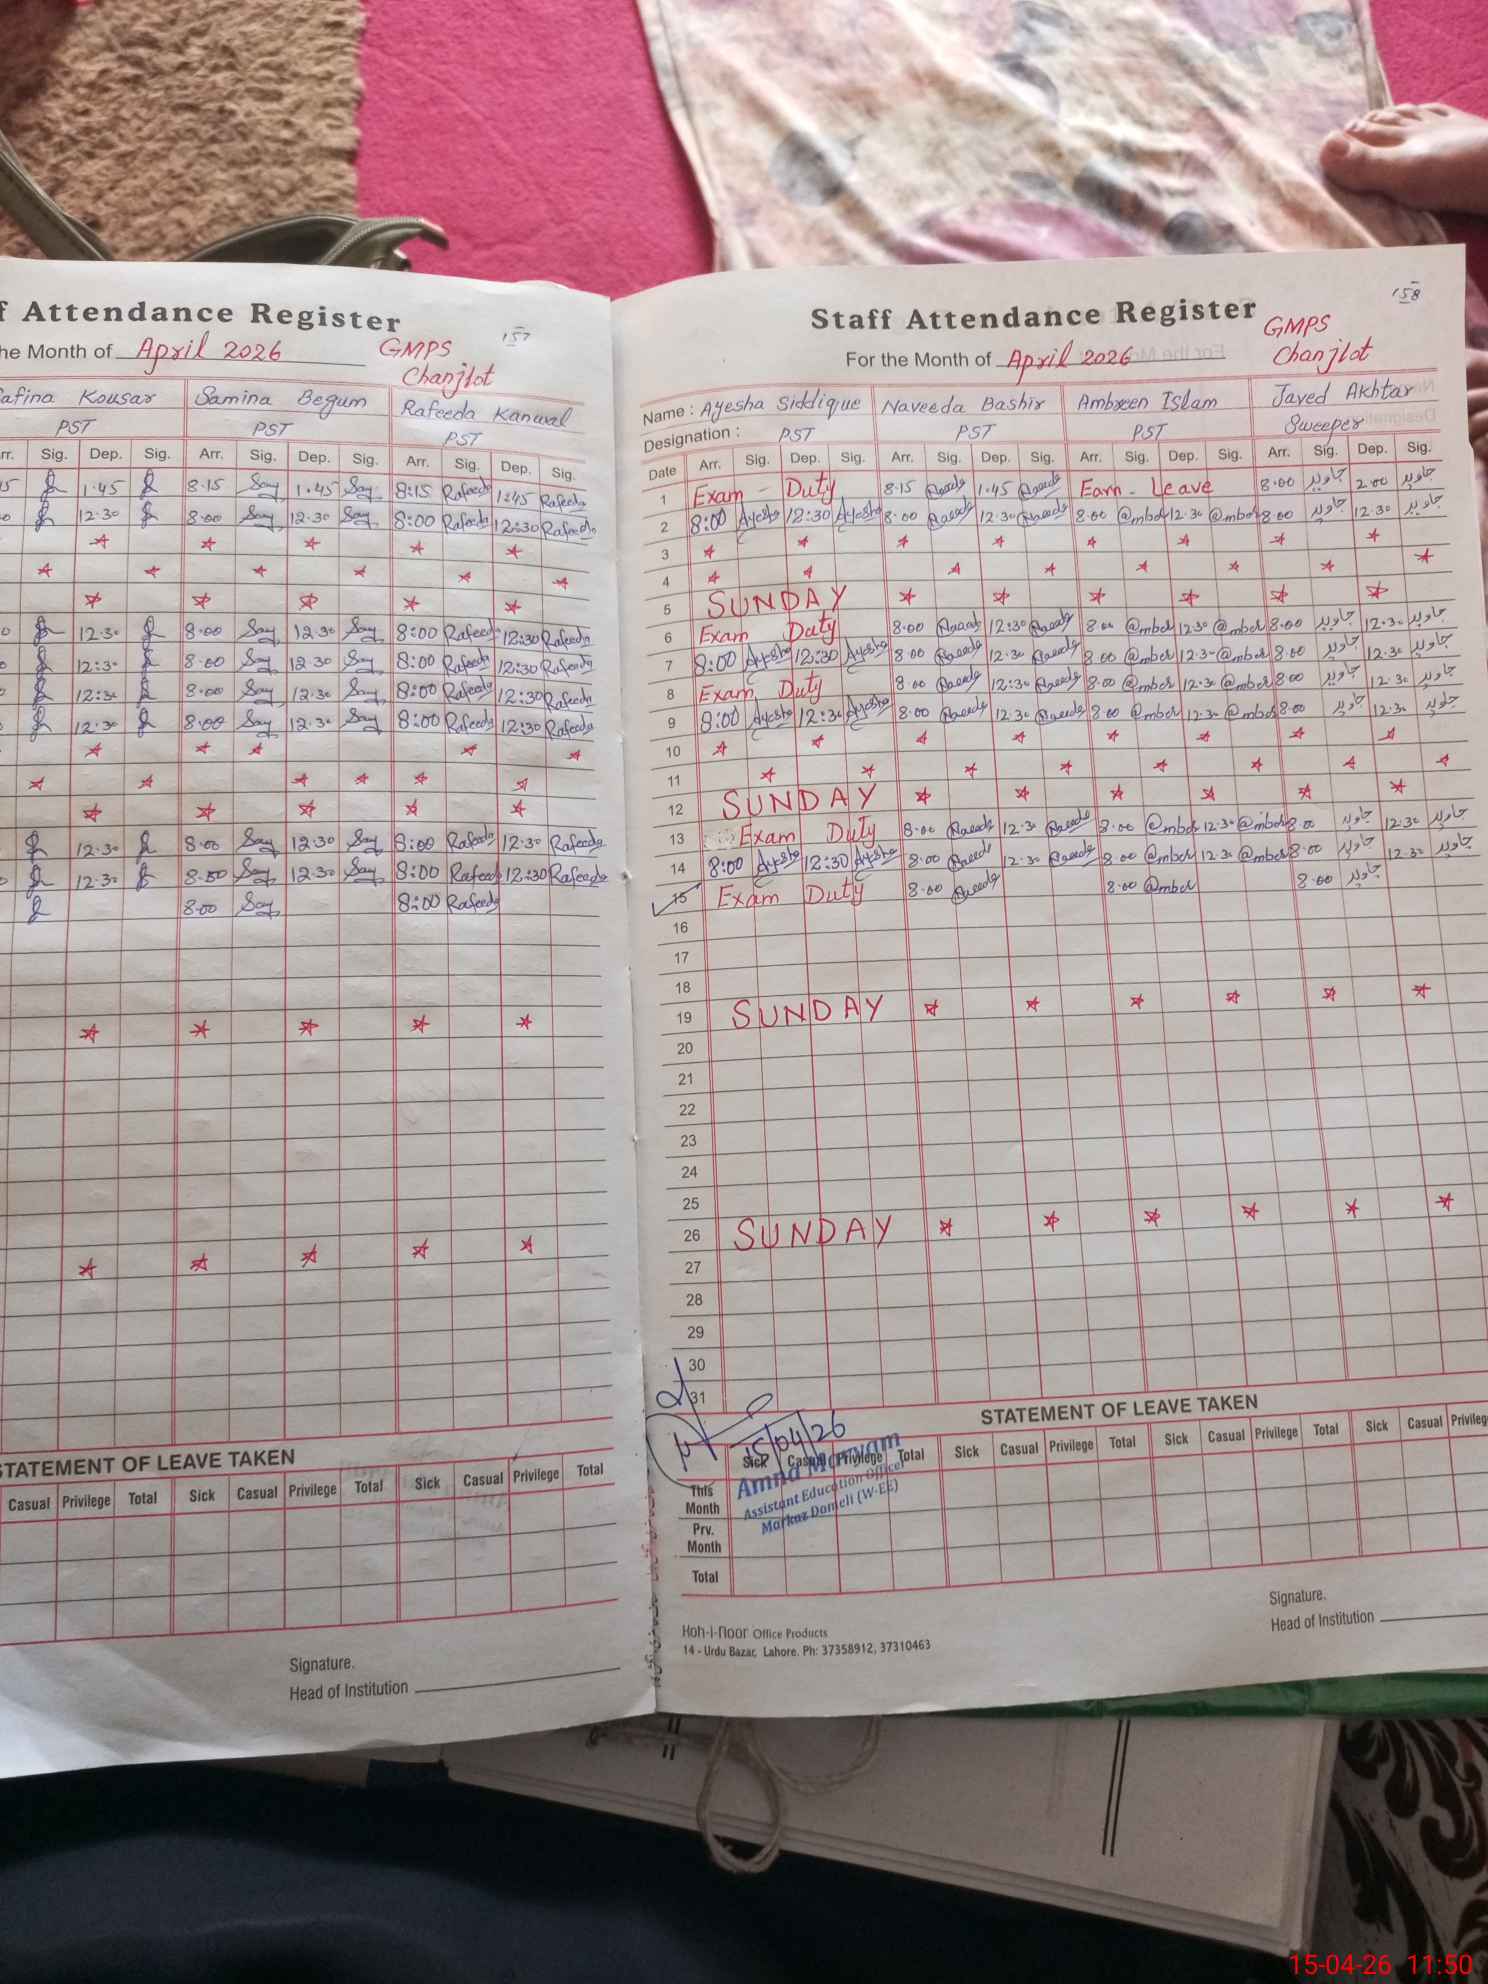 f Attendance Register
157
he Month of April 2026
GMPS
Chanjlot
afina Kousar Samina Begum Rafeeda Kanwal
PST PST PST
rr. Sig. Dep. Sig. Arr. Sig. Dep. Sig. Arr. Sig. Dep. Sig.
15 1.45 8.15 1.45 8:15 Rafeeda 1:45 Rafeeda
12.30 8.00 12.30 8:00 Rafeeda 12:30 Rafeeda
12.30 8.00 12.30 8:00 Rafeeda 12:30 Rafeeda
12:30 8.00 12.30 8:00 Rafeeda 12:30 Rafeeda
12:30 8.00 12.30 8:00 Rafeeda 12:30 Rafeeda
12.30 8.00 12.30 8:00 Rafeeda 12:30 Rafeeda
12.30 8.00 12.30 8:00 Rafeeda 12:30 Rafeeda
12.30 8.00 12.30 8:00 Rafeeda 12:30 Rafeeda
8.00 8:00 Rafeeda
STATEMENT OF LEAVE TAKEN
Casual Privilege Total Sick Casual Privilege Total Sick Casual Privilege Total
Signature.
Head of Institution
158
Staff Attendance Register
For the Month of April 2026
GMPS
Chanjlot
Name : Ayesha Siddique Naveeda Bashir Ambreen Islam Javed Akhtar
Designation : PST PST PST Sweeper
Date Arr. Sig. Dep. Sig. Arr. Sig. Dep. Sig. Arr. Sig. Dep. Sig. Arr. Sig. Dep. Sig.
1 Exam - Duty 8.15 1.45 Earn - Leave 8.00 جاوید 2.00 جاوید
2 8:00 Ayesha 12:30 Ayesha 8.00 12.30 8.00 @mber 12.30 @mber 8.00 جاوید 12.30 جاوید
3
4
5 SUNDAY
6 Exam Duty 8.00 12:30 8.00 @mber 12.30 @mber 8.00 جاوید 12.30 جاوید
7 8:00 Ayesha 12:30 Ayesha 8.00 12.30 8.00 @mber 12.30 @mber 8.00 جاوید 12.30 جاوید
8 Exam Duty 8.00 12:30 8.00 @mber 12.30 @mber 8.00 جاوید 12.30 جاوید
9 8:00 Ayesha 12:30 Ayesha 8.00 12.30 8.00 @mber 12.30 @mber 8.00 جاوید 12.30 جاوید
10
11
12 SUNDAY
13 Exam Duty 8.00 12.30 8.00 @mber 12.30 @mber 8.00 جاوید 12.30 جاوید
14 8:00 Ayesha 12:30 Ayesha 8.00 12.30 8.00 @mber 12.30 @mber 8.00 جاوید 12.30 جاوید
15 Exam Duty 8.00 8.00 @mber 8.00 جاوید
16
17
18
19 SUNDAY
20
21
22
23
24
25
26 SUNDAY
27
28
29
30
31
STATEMENT OF LEAVE TAKEN
15/04/26
Sick Casual Privilege Total Sick Casual Privilege Total Sick Casual Privilege Total Sick Casual Privileg
Amna Maryam
Assistant Education Officer
Markaz Domeli (W-EE)
This Month
Prv. Month
Total
Koh-i-noor Office Products
14 - Urdu Bazar, Lahore. Ph: 37358912, 37310463
Signature.
Head of Institution
15-04-26 11:50